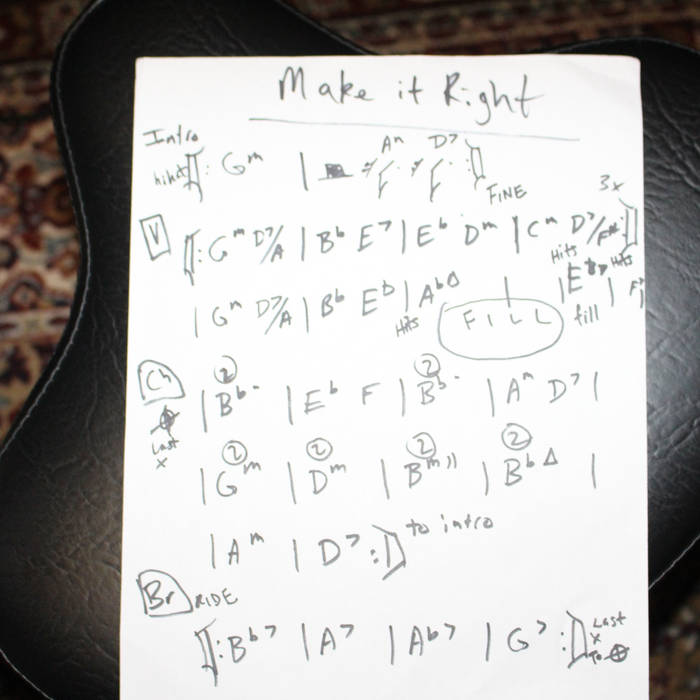 Make it Right
Intro
Am D7
hihat 𝄆: Gm | :𝄇
FINE
3x
V 𝄆: Gm D7/A | Bb E7 | Eb Dm | Cm D7/F# :𝄇
Hits Hits
| Gm D7/A | Bb Eb | AbΔ FILL | | Eb | F7
Hits fill
Ch | ② Bb- | Eb F | ② Bb- | Am D7 |
Last
x
| ② Gm | ② Dm | ② Bm11 | ② BbΔ |
| Am | D7 :𝄇 to intro
Br RIDE
𝄆: Bb7 | A7 | Ab7 | G7 :𝄇 Last
x
To 𝄌